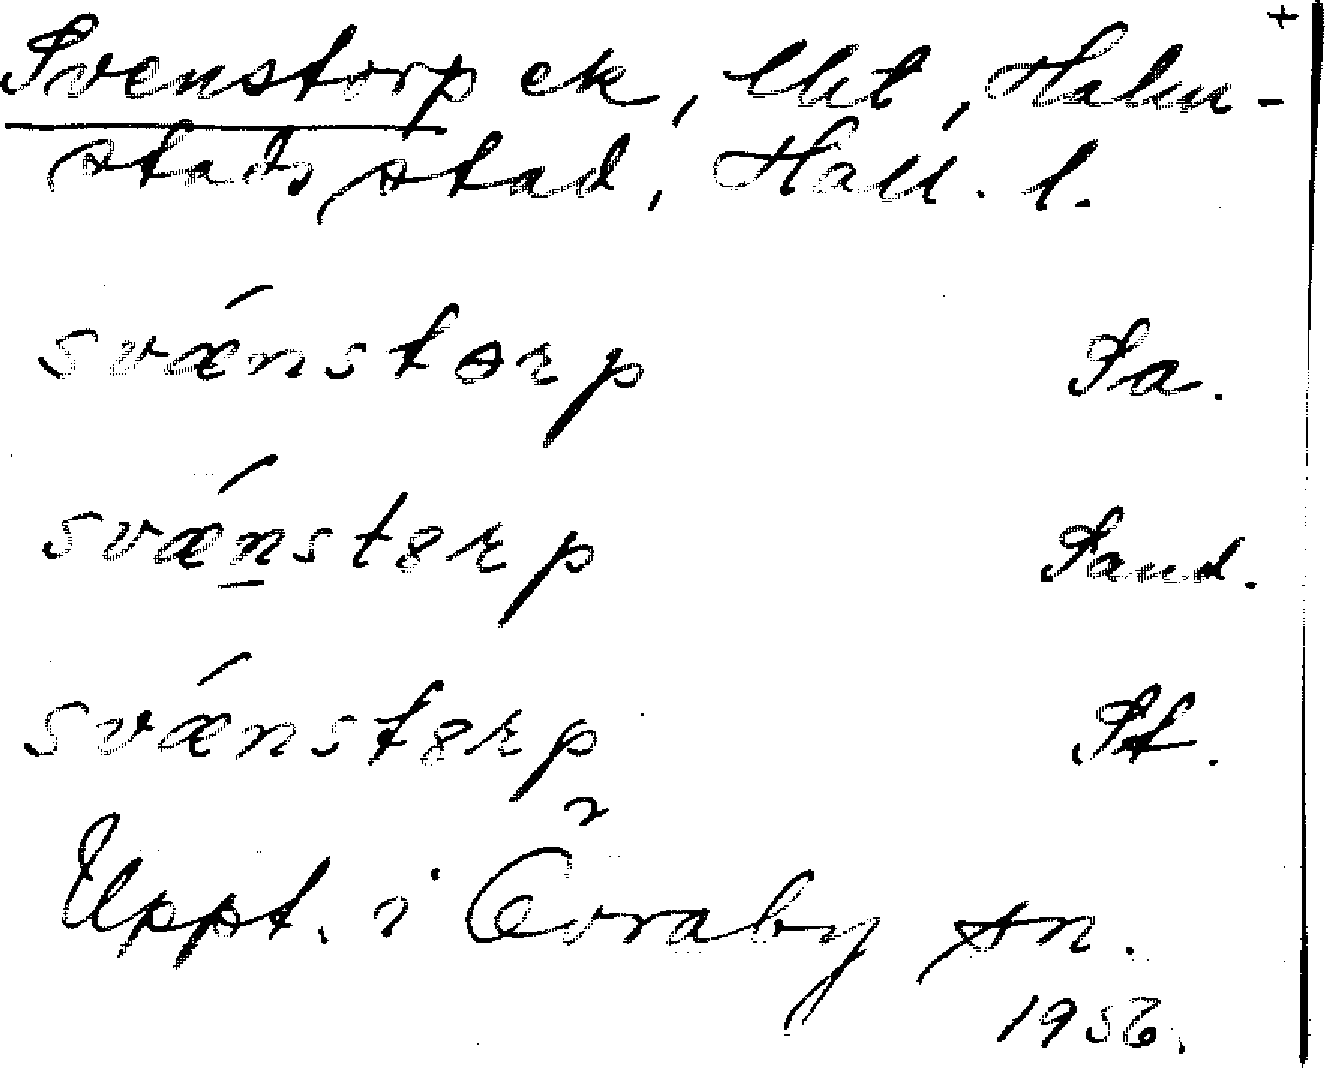 +
Svenstorp ek, Ebl, Halm-
stads stad, Hall. l.
svǽnstɵrp Sa.
svǽn̲stɵrp Sand.
svǽnstɵrp St.
Uppt. i Övraby sn.
1956.